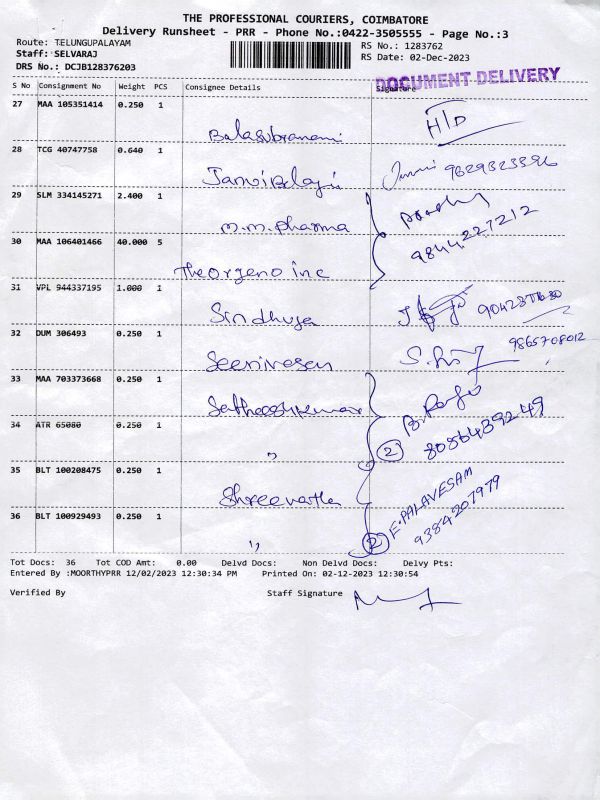 THE PROFESSIONAL COURIERS, COIMBATORE
Delivery Runsheet - PRR - Phone No.:0422-3505555 - Page No.:3
Route: TELUNGUPALAYAM
RS No.: 1283762
Staff: SELVARAJ
RS Date: 02-Dec-2023
DRS No.: DCJB128376203
DOCUMENT DELIVERY
S No Consignment No Weight PCS Consignee Details Signature
27 MAA 105351414 0.250 1
Balasubramani H/D
28 TCG 40747758 0.640 1
Janvi Balaji
29 SLM 334145271 2.400 1
M.M. Pharma
9844227212
30 MAA 106401466 40.000 5
Theorgeno inc
31 VPL 944337195 1.000 1
Sindhuja
32 DUM 306493 0.250 1
Seenivasan 9865708012
33 MAA 703373668 0.250 1
Satheeshkumar
34 ATR 65080 0.250 1
" 2 8056439249
35 BLT 100208475 0.250 1
E.PALAVESAM
9384207979
36 BLT 100929493 0.250 1
" 2
Tot Docs: 36 Tot COD Amt: 0.00 Delvd Docs: Non Delvd Docs: Delvy Pts:
Entered By :MOORTHYPRR 12/02/2023 12:30:34 PM Printed On: 02-12-2023 12:30:54
Verified By Staff Signature